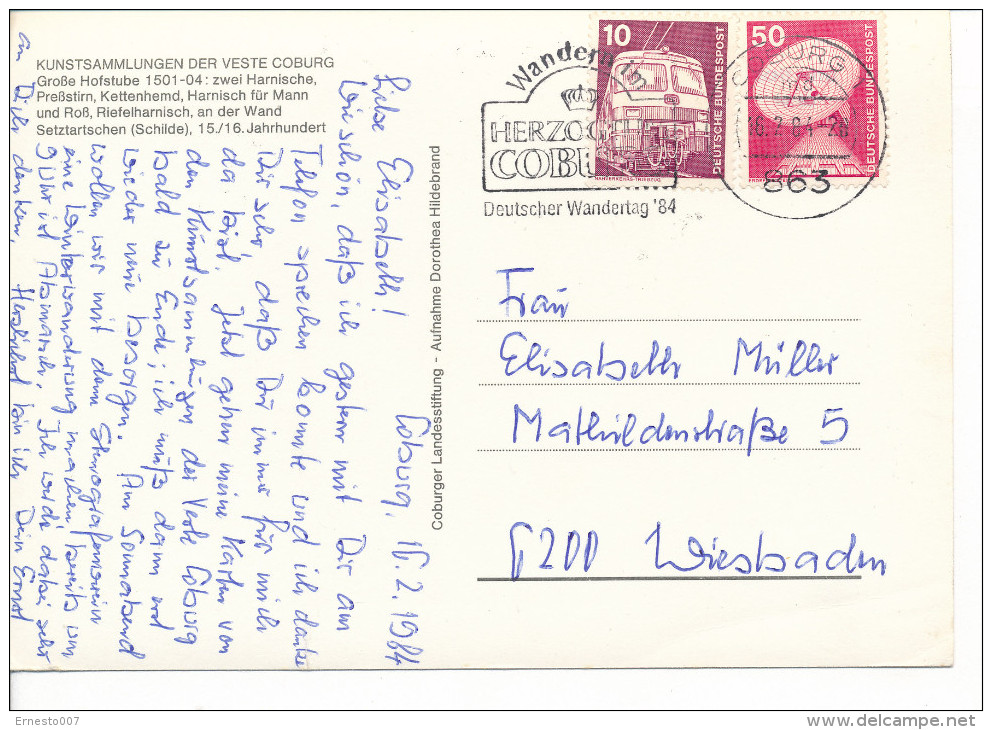 KUNSTSAMMLUNGEN DER VESTE COBURG
Große Hofstube 1501-04: zwei Harnische,
Preßstirn, Kettenhemd, Harnisch für Mann
und Roß, Riefelharnisch, an der Wand
Setztartschen (Schilde), 15./16. Jahrhundert
Coburg, 16.2.1984
Liebe Elisabeth!
Wie schön, daß ich gestern mit Dir am
Telefon sprechen konnte und ich danke
Dir sehr, daß Du immer für mich
da bist. Jetzt gehen meine Karten von
den Kunstsammlungen der Veste Coburg
bald zu Ende; ich muß dann mal
wieder neue besorgen. Am Sonnabend
wollen wir mit dem Stenografenverein
eine Winterwanderung machen, bereits um
9 Uhr ist Abmarsch. Ich werde dabei sehr
an Dich denken. Herzlichst bin ich Dein Ernst
Coburger Landesstiftung - Aufnahme Dorothea Hildebrand
Wandern im
HERZOGL
COBURG
Deutscher Wandertag '84
10
DEUTSCHE BUNDESPOST
50
DEUTSCHE BUNDESPOST
COBURG
16.2.84
863
Frau
Elisabeth Müller
Mathildenstraße 5
6200 Wiesbaden
Ernesto007
delcampe.net